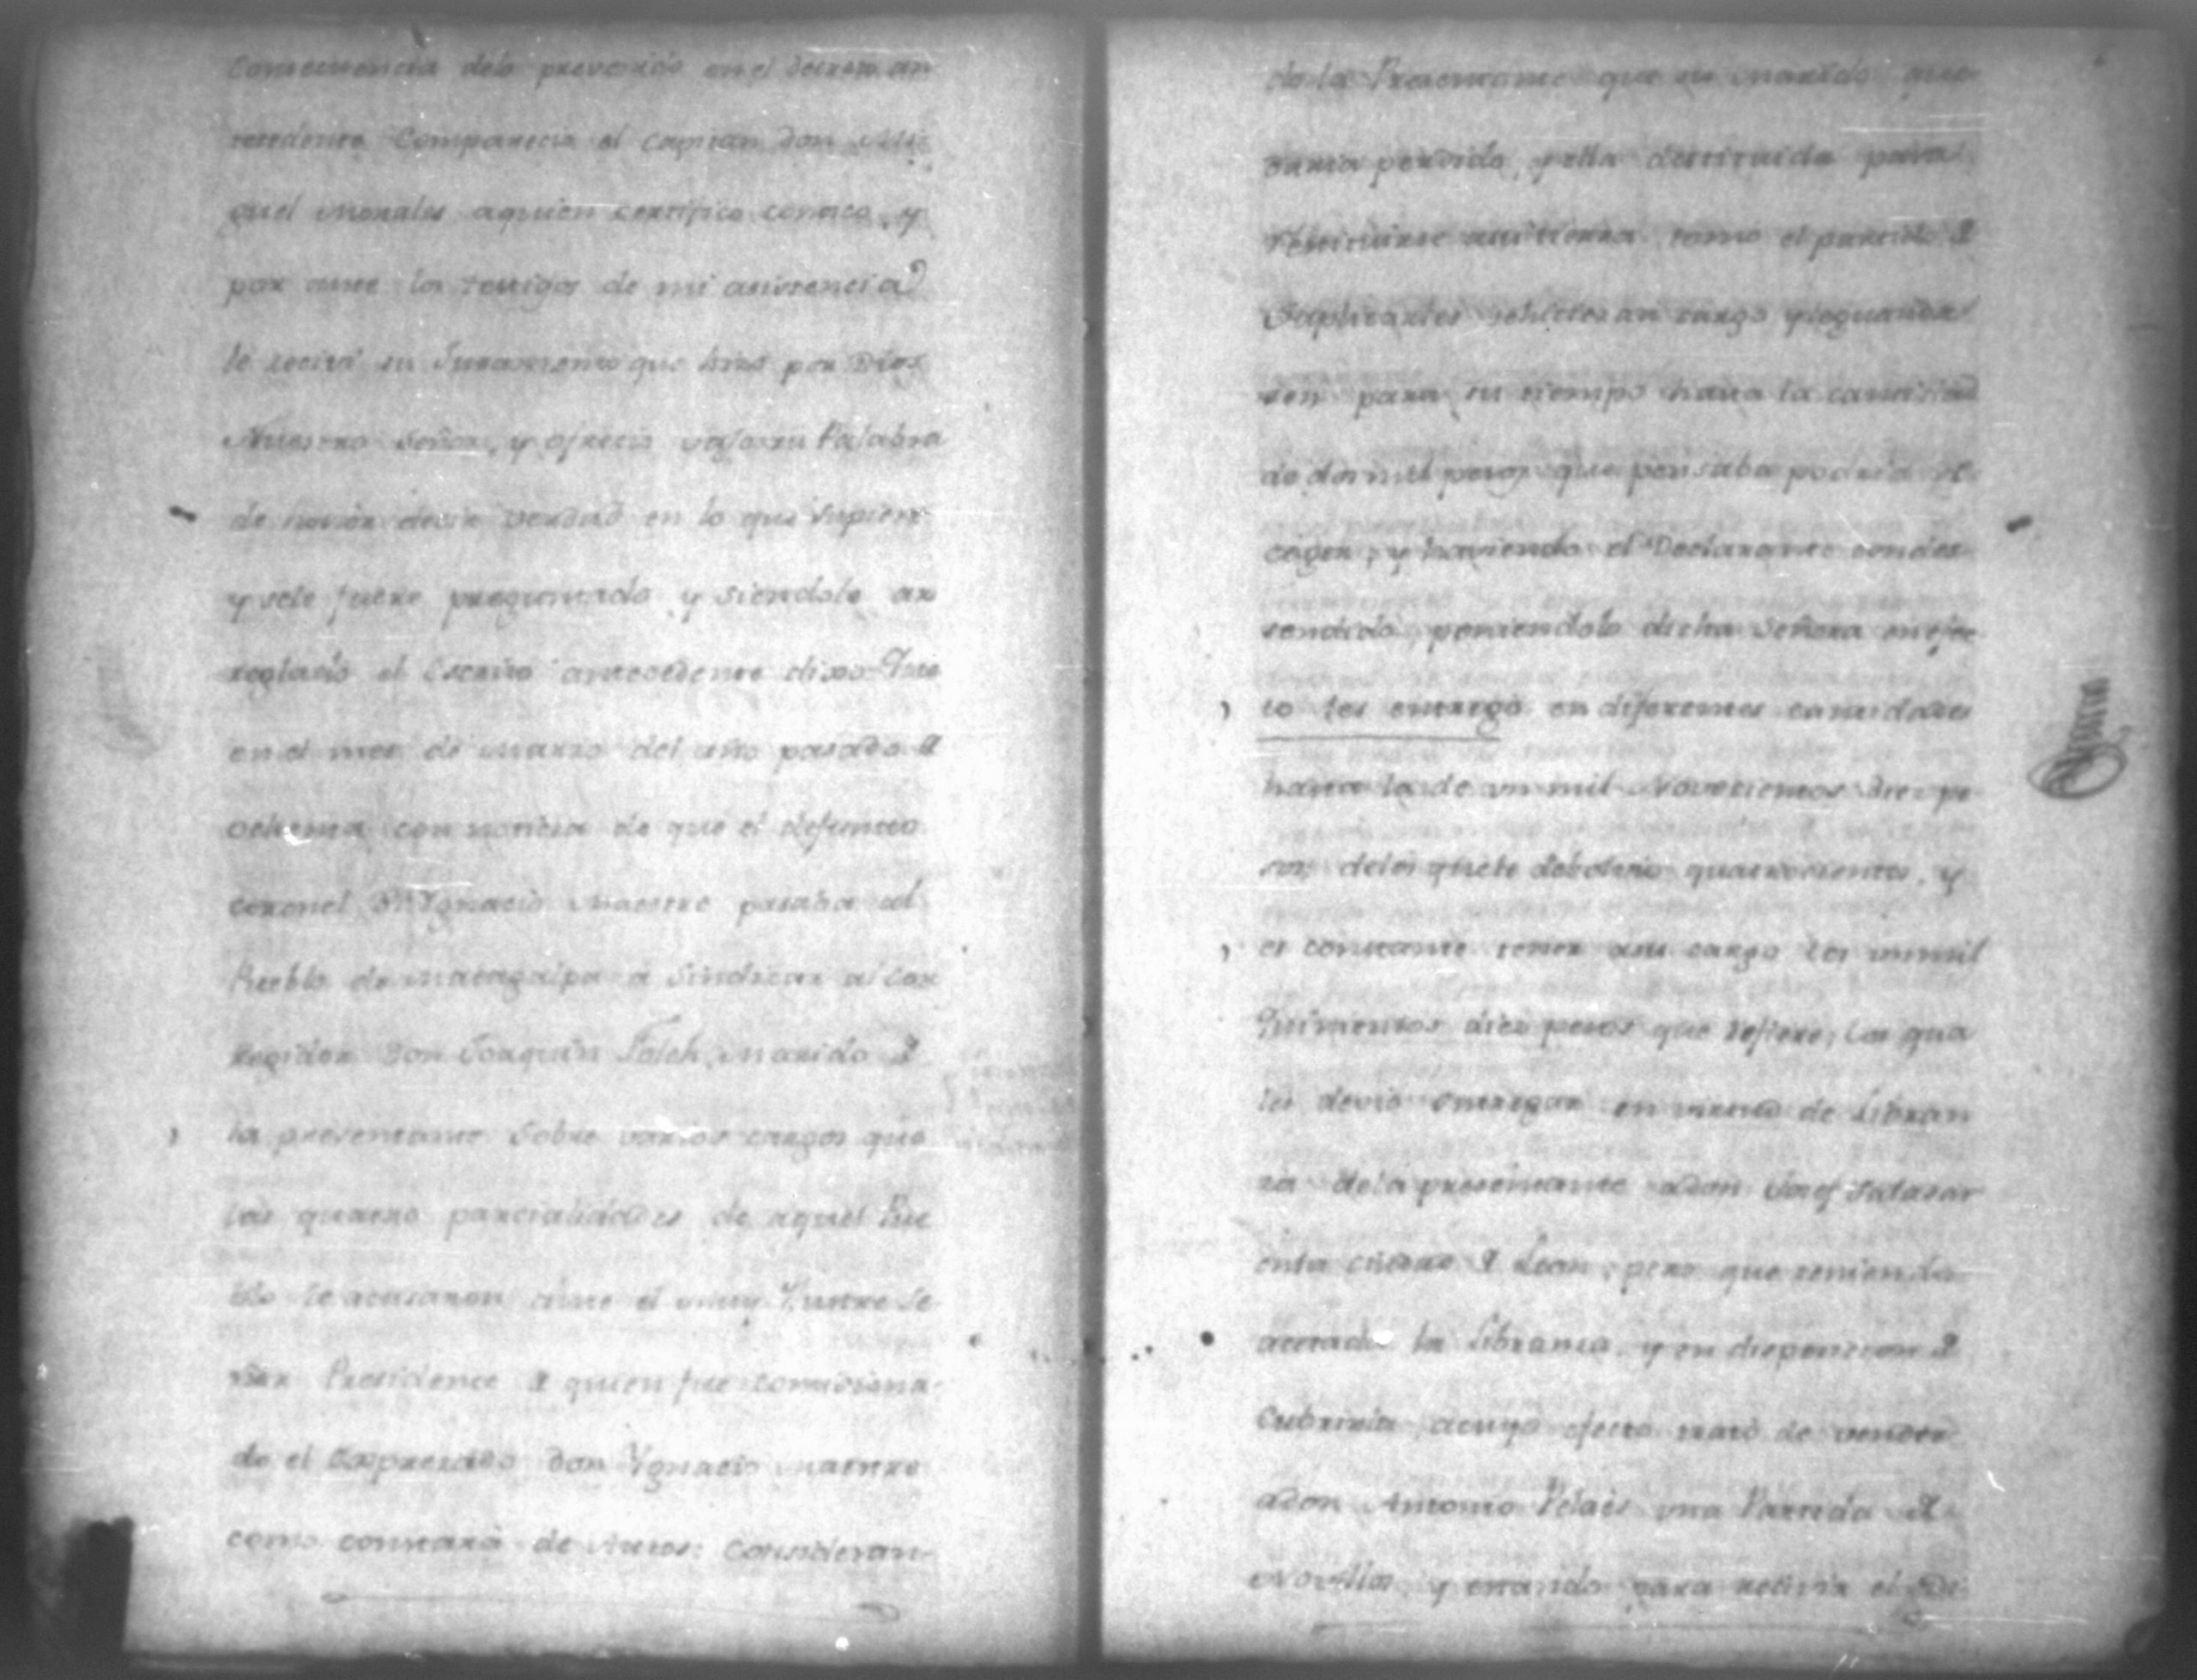 Consecuencia delo prevenido en el Decreto an
tecedente Comparecio el Capitan Don Mi
guel Morales aquien certifico conosco, y
por ante los testigos de mi asistencia
le recivi su Juramento que hizo por Dios
Nuestro Señor, y ofrecio vajo su Palabra
de honor decir verdad en lo que supiere
y sele fuere preguntado y siendolo ar
reglado el Escrito antecedente dixo Que
en el mes de Marzo del año pasado de
ochenta con noticia de que el defuncto
coronel Dn Ygnacio Maestre pasaba al
Pueblo de Matagalpa a Sindicar al Cor
regidor Don Joaquin Folch, marido de
la presentante sobre varios cargos que
las quatro parcialidades de aquel Pue
blo le acusaron ante el muy Ylustre Se
ñor Presidente de quien fue comisiona-
do el expresado Don Ygnacio Maestre
como constará de Autos: Consideran-
do la Presentante que su marido que
daria perdido, y ella destituida para
restituirse asu tierra tomó el partido de
Suplicarles sehiciesen cargo y leguarda
sen para su tiempo hasta la cantidad
de dos mil pesos que pensaba podria re
coger, y haviendo el Declarante condes
cendido, poniendolo dicha Señora en efec
to les entregó en diferentes cantidades
hasta la de un mil Novecientos Diez pe
sos, delos quele debolvio quatrocientos, y
es constante tener asu cargo los un mil
Quinientos diez pesos que refiere, los qua
les devió entregar en virtud de Libran
za dela presentante adon Josef Salazar
enla ciudad de Leon, pero que teniendo
acetada la Libranza, y en disposicion de
Cubrirla acuyo efecto trató de vender
adon Antonio Pelaes una Partida de
Novillos, y estando para recivir el Di